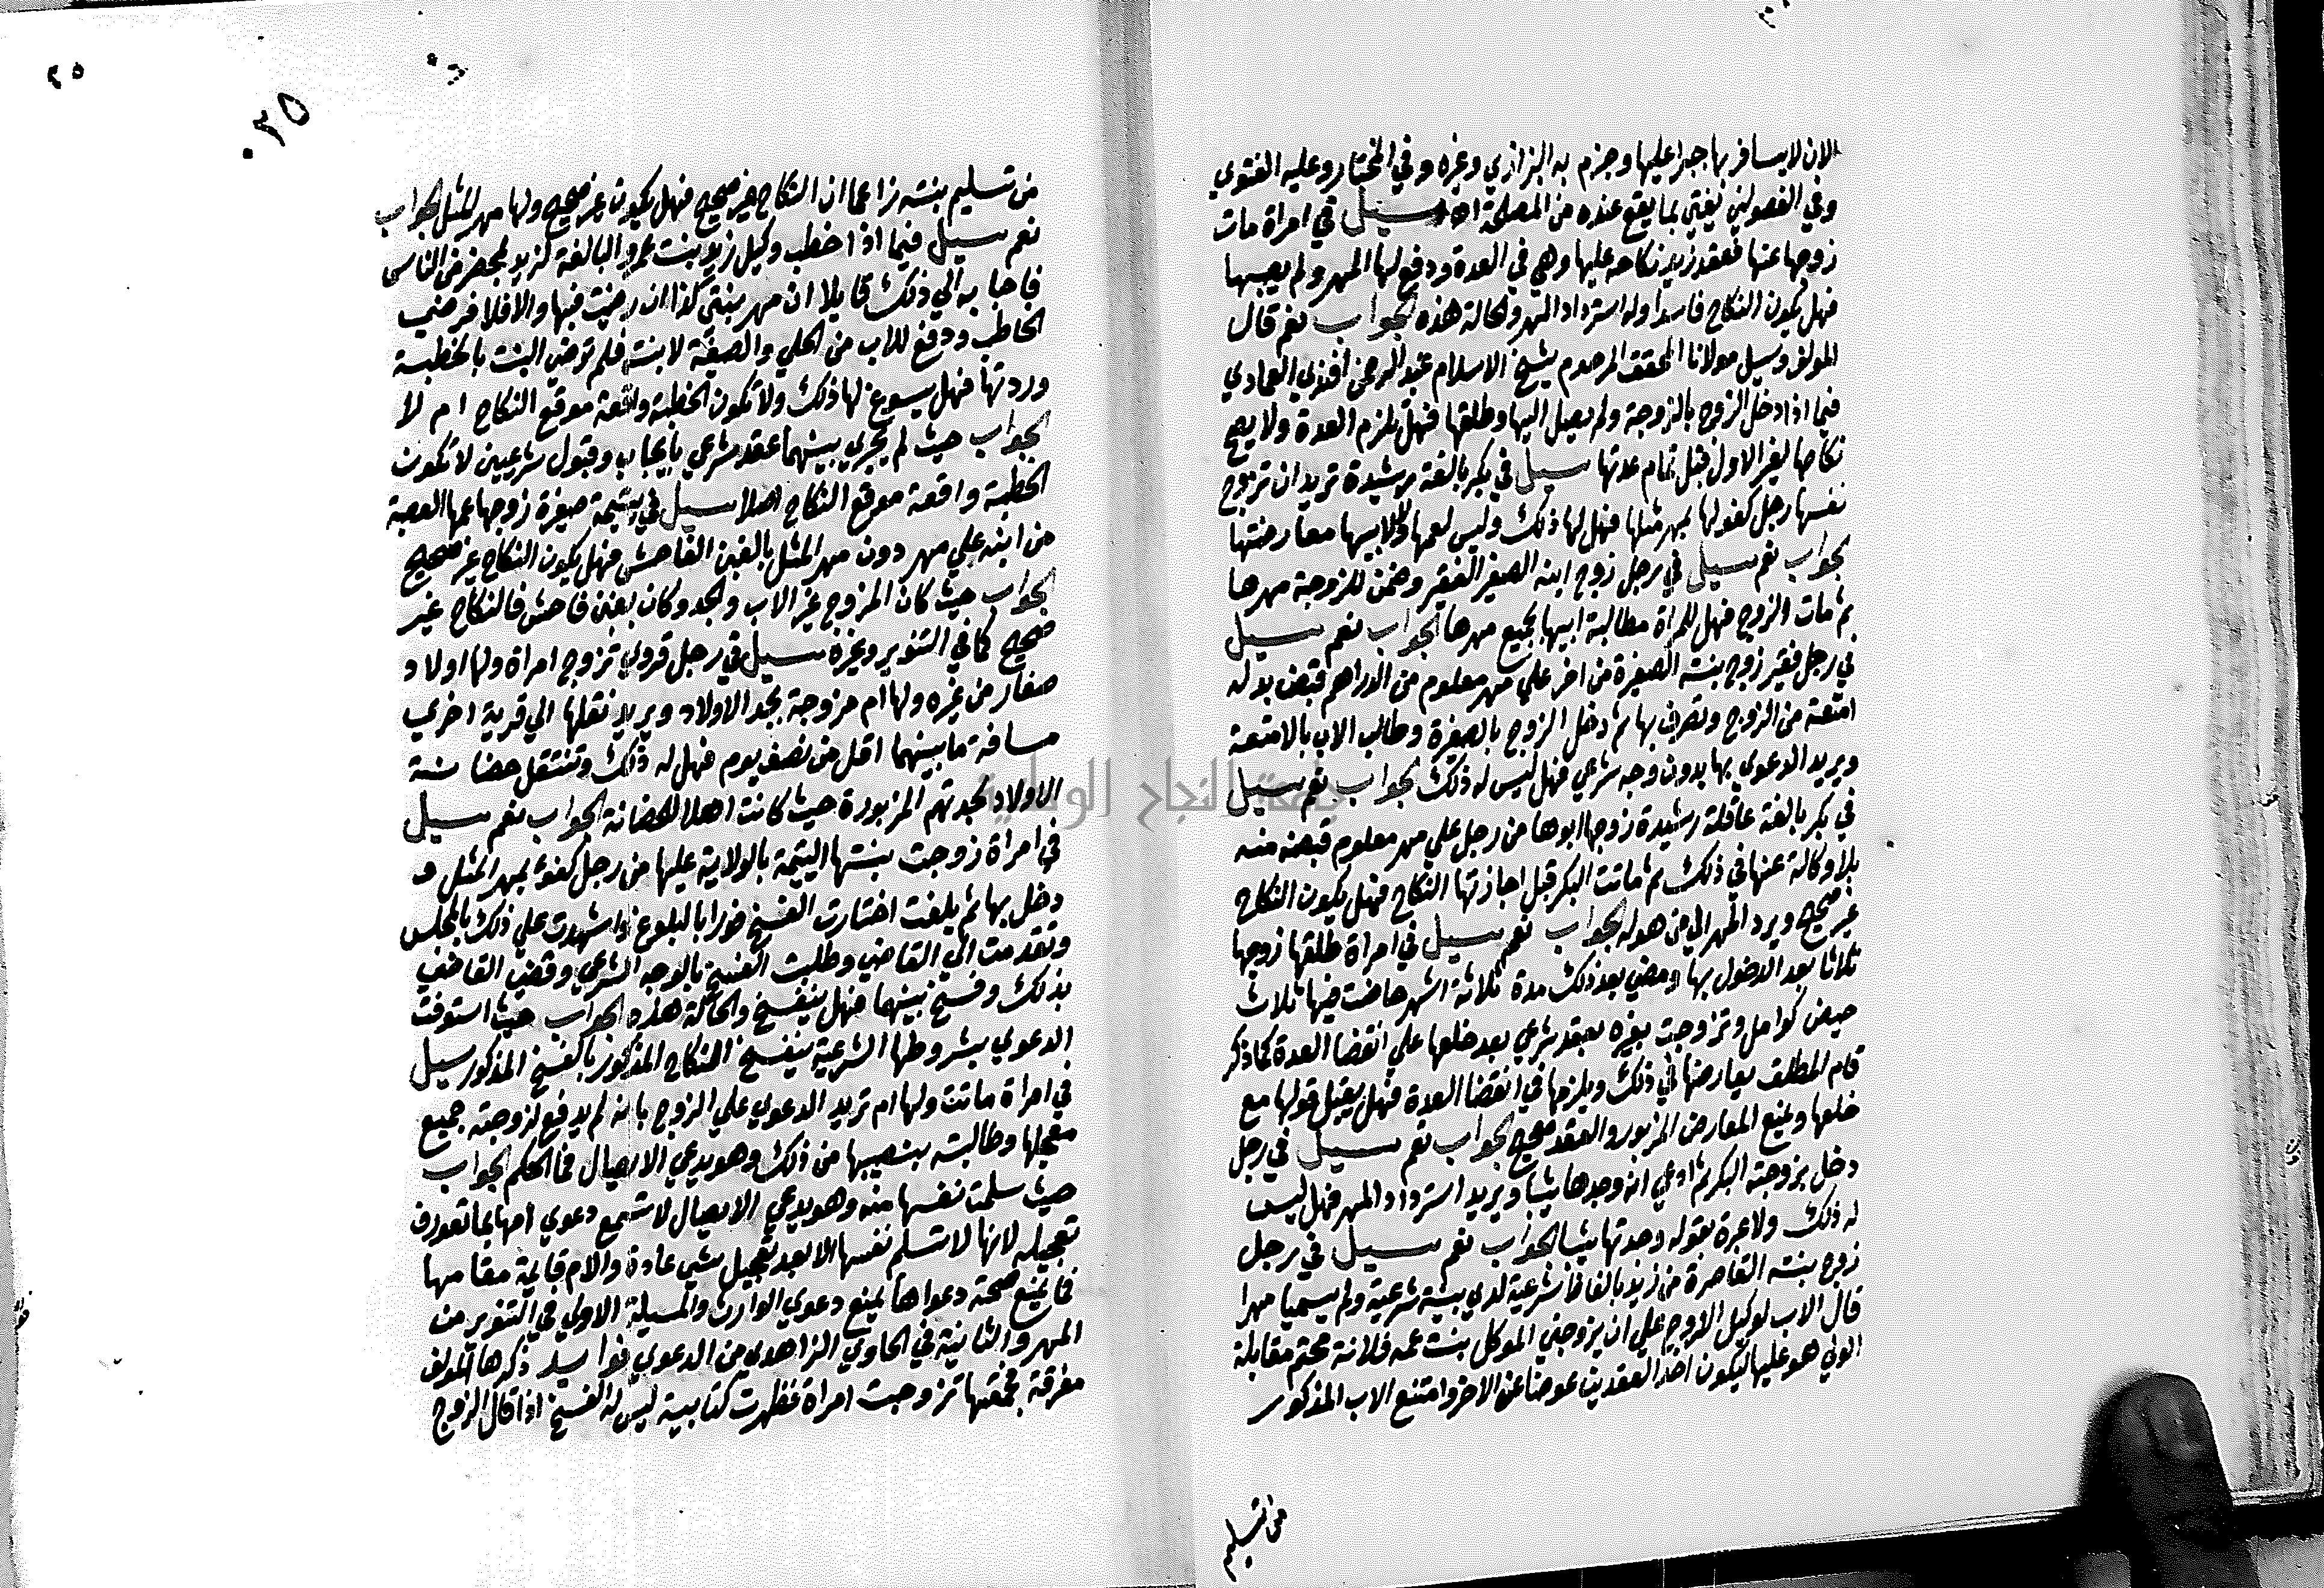 الان لا يسافر بها جبرا عليها وجزم به البزازي وغيره وفي المختار وعليه الفتوي
وفي الفصولين يفتي بما يقع عنده من المصلحة اهـ سيل في امراة مات
زوجها عنها فعقد زيد نكاحه عليها وهي في العدة ودفع لها المهر ولم يصبها
فهل يكون النكاح فاسدا وله استرداد المهر والحالة هذه الجواب نعم قال
المولف وسيل مولانا المحقق المرحوم شيخ الاسلام عبد الرحمن افندي العمادي
فيما اذا دخل الزوج بالزوجة ولم يصل اليها وطلقها فهل تلزم العدة ولا يصح
نكاحها لغير الاول قبل تمام عدتها سيل في بكر بالغة رشيدة تريد ان تزوج
نفسها رجل كفو لها بمهر مثلها فهل لها ذلك وليس لعمها ولا لابيها معارضتها
الجواب نعم سيل في رجل زوج ابنه الصغير الفقير وضمن للزوجة مهرها
ثم مات الزوج فهل للمراة مطالبة ابيها بجميع مهرها الجواب نعم سيل
في رجل فقير زوج بنته الصغيرة من اخر علي مهر معلوم من الدراهم قبض بدله
امتعة من الزوج وتصرف بها ثم دخل الزوج بالصغيرة وطالب الاب بالامتعة
ويريد الدعوي بها بدون وجه شرعي فهل ليس له ذلك الجواب نعم سيل
في بكر بالغة عاقلة رشيدة زوجها ابوها من رجل علي مهر معلوم قبضه منه
بلا وكالة عنها في ذلك ثم ماتت البكر قبل اجازتها النكاح فهل يكون النكاح
غير صحيح ويرد المهر الي من هو له الجواب نعم سيل في امراة طلقها زوجها
ثلاثا بعد الدخول بها ومضي بعد ذلك مدة ثلاثة اشهر حاضت فيها ثلاث
حيض كوامل وتزوجت بغيره بعقد شرعي بعد حلفها علي انقضا العدة كما ذكر
قام المطلق يعارضها في ذلك ويلزمها في انقضا العدة فهل يقبل قولها مع
حلفها ويمنع المعارض المزبور والعقد صحيح الجواب نعم سيل في رجل
دخل بزوجته البكر ثم ادعي انه وجدها ثيبا ويريد استرداد المهر فهل ليس
له ذلك ولا عبرة بقوله وجدتها ثيبا الجواب نعم سيل في رجل
زوج بنته القاصرة من زيد بالفاظ شرعية لدي بينة شرعية ولم يسميا مهرا
قال الاب لوكيل الزوج علي ان يزوجني الموكل بنت عمه فلانة مقابلة
الولي هو عليها ليكون احد العقدين عوضا عن الاخر وامتنع الاب المذكور
من تسليم
٠٢٥
٢٥
من تسليم بنته زاعما ان النكاح غير صحيح فهل يكون غير صحيح ولها مهر المثل الجواب
نعم سيل فيما اذا خطب وكيل زيد بنت عمرو البالغة لزيد بمحضر من الناس
فاجابه الي ذلك قايلا ان مهر بنتي كذا ان رضيت فبها والا فلا فرضي
الخاطب ودفع للاب من الحلي والصيغة لابنته فلم ترض البنت بالخطبة
وردتها فهل يسوغ لها ذلك ولا تكون الخطبة واقعة موقع النكاح ام لا
الجواب حيث لم يجري بينهما عقد شرعي بايجاب وقبول شرعيين لا تكون
الخطبة واقعة موقع النكاح اصلا سيل في يتيمة صغيرة زوجها عمها العصبة
من ابنه علي مهر دون مهر المثل بالغبن الفاحش فهل يكون النكاح غير صحيح
الجواب حيث كان المزوج غير الاب والجد وكان بغبن فاحش فالنكاح غير
صحيح كما في التنوير وغيره سيل في رجل قروي تزوج امراة ولها اولاد
صغار من غيره ولها ام مزوجة بجد الاولاد ويريد نقلها الي قرية اخري
مسافة ما بينهما اقل من نصف يوم فهل له ذلك وتنتقل حضانة
الاولاد لجدتهم المزبورة حيث كانت اهلا للحضانة الجواب نعم سيل
في امراة زوجت بنتها اليتيمة بالولاية عليها من رجل كفوء بمهر المثل و
دخل بها ثم بلغت اختارت الفسخ فورا بالبلوغ واشهدت علي ذلك بالمجلس
وتقدمت الي القاضي وطلبت الفسخ بالوجه الشرعي وقضي القاضي
بذلك وفسخ بينهما فهل ينفسخ والحالة هذه الجواب حيث استوفت
الدعوي بشروطها الشرعية ينفسخ النكاح المذكور بالفسخ المذكور سيل
في امراة ماتت ولها ام تريد الدعوي علي الزوج بانه لم يدفع لزوجته جميع
معجلها وطالبته بنصيبها من ذلك وهو يدعي الايصال فما الحكم الجواب
حيث سلمت نفسها منه وهو يدعي الايصال لا تسمع دعوي امها بما تعورف
تعجيله لانها لا تسلم نفسها الا بعد تعجيل شي عادة والام قايمة مقامها
فما يمنع صحة دعواها يمنع دعوي الوارث والمسيلة الاولي في التنوير من
المهر والثانية في الحاوي الزاهدي من الدعوي فوايد ذكرها المولف
مفرقة فجمعتها تزوجت امراة فظهرت كتابية ليس له الفسخ اذا قال الزوج
جامعة النجاح الوطنية